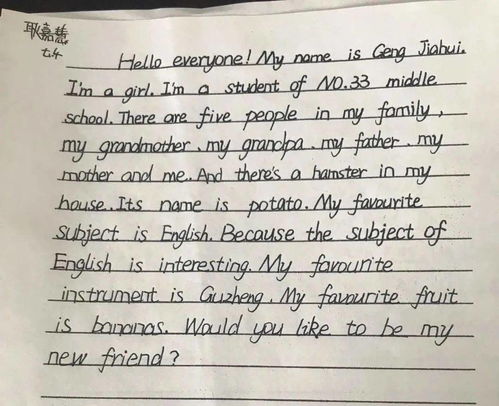 耿嘉慧
七4
Hello everyone! My name is Geng Jiahui.
I'm a girl. I'm a student of NO.33 middle
school. There are five people in my family,
my grandmother、my grandpa、my father、my
mother and me. And there's a hamster in my
house. Its name is potato. My favourite
subject is English. Because the subject of
English is interesting. My favourite
instrument is Guzheng. My favourite fruit
is bananas. Would you like to be my
new friend?